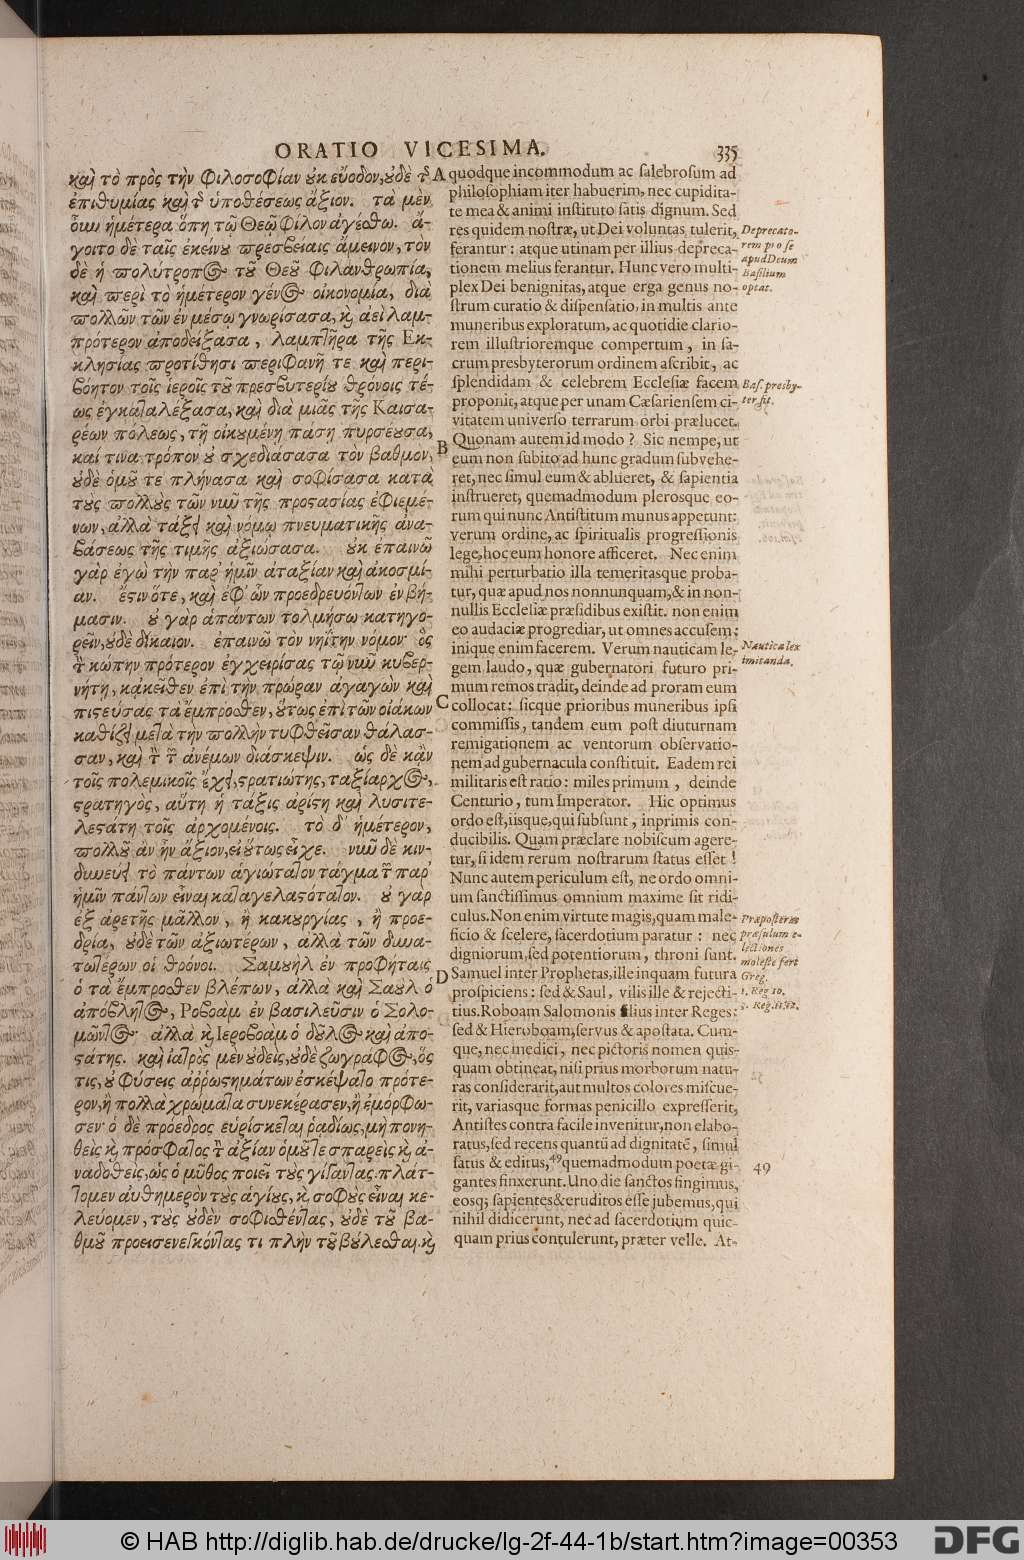 ORATIO VICESIMA. 335
καὶ τὸ πρὸς τὴν Φιλοσοφίαν οὐκ εὔοδον, οὐδὲ τῆς
ἐπιθυμίας καὶ τῆς ὑποθέσεως ἄξιον. τὰ μὲν
οὖν ἡμέτερα ὅπη τῷ Θεῷ φίλον ἀγέσθω. ἄ-
γοιτο δὲ ταῖς ἐκείνου πρεσβείαις ἄμεινον, τὸν
δὲ ἡ πολύτροπος τοῦ Θεοῦ Φιλανθρωπία,
καὶ περὶ τὸ ἡμέτερον γένος οἰκονομία, διὰ
πολλῶν τῶν ἐν μέσῳ γνωρίσασα, καὶ ἀεὶ λαμ-
πρότερον ἀποδείξασα, λαμπτῆρα τῆς Ἐκ-
κλησίας προτίθησι περιφανῆ τε καὶ περι-
βόητον τοῖς ἱεροῖς τοῦ πρεσβυτερίου θρόνοις τέ-
ως ἐγκαταλέξασα, καὶ διὰ μιᾶς τῆς Καισα-
ρέων πόλεως, τῇ οἰκουμένῃ πάσῃ πυρσεύουσα,
καὶ τίνα τρόπον οὐ σχεδιάσασα τὸν βαθμὸν,
οὐδὲ ὁμοῦ τε πλήνασα καὶ σοφίσασα κατὰ
τοὺς πολλοὺς τῶν νῦν τῆς προστασίας ἐφιεμέ-
νων, ἀλλὰ τάξει καὶ νόμῳ πνευματικῆς ἀνα-
βάσεως τῆς τιμῆς ἀξιώσασα. οὐκ ἐπαινῶ
γὰρ ἐγὼ τὴν παρ' ἡμῖν ἀταξίαν καὶ ἀκοσμί-
αν. ἔστιν ὅτε, καὶ ἐφ' ὧν προεδρευόντων ἐν βή-
μασιν. οὐ γὰρ ἁπάντων τολμήσω κατηγο-
ρεῖν, οὐδὲ δίκαιον. ἐπαινῶ τὸν νηΐτην νόμον· ὃς
τὴν κώπην πρότερον ἐγχειρίσας τῷ νῦν κυβερ-
νήτῃ, κἀκεῖθεν ἐπὶ τὴν πρώραν ἀγαγὼν καὶ
πιστεύσας τὰ ἔμπροσθεν, οὕτως ἐπὶ τῶν οἰάκων
καθίζει μετὰ τὴν πολλὴν τυφθεῖσαν θάλασ-
σαν, καὶ τὴν τῶν ἀνέμων διάσκεψιν. ὡς δὲ κἂν
τοῖς πολεμικοῖς ἔχει, στρατιώτης, ταξίαρχος,
στρατηγὸς, αὕτη ἡ τάξις ἀρίστη καὶ λυσιτε-
λεστάτη τοῖς ἀρχομένοις. τὸ δ' ἡμέτερον,
πολλοῦ ἂν ἦν ἄξιον, εἰ οὕτως εἶχε. νῦν δὲ κιν-
δυνεύει τὸ πάντων ἁγιώτατον τάγμα τῶν παρ'
ἡμῖν πάντων εἶναι καταγελαστότατον. οὐ γὰρ
ἐξ ἀρετῆς μᾶλλον, ἢ κακουργίας, ἢ προε-
δρία, οὐδὲ τῶν ἀξιωτέρων, ἀλλὰ τῶν δυνα-
τωτέρων οἱ θρόνοι. Σαμουὴλ ἐν προφήταις
ὁ τὰ ἔμπροσθεν βλέπων, ἀλλὰ καὶ Σαοὺλ ὁ
ἀπόβλητος, Ῥοβοὰμ ἐν βασιλεῦσιν ὁ Σολο-
μῶντος· ἀλλὰ καὶ Ἱεροβοὰμ ὁ δοῦλος καὶ ἀπο-
στάτης. καὶ ἰατρὸς μὲν οὐδεὶς, οὐδὲ ζωγράφος, ὅς
τις, οὐ φύσεις ἀῤῥωστημάτων ἐσκέψατο πρότε-
ρον, ἢ πολλὰ χρώματα συνεκέρασεν, ἢ ἐμόρφω-
σεν· ὁ δὲ πρόεδρος εὑρίσκεται ῥαδίως, μὴ πονη-
θεὶς καὶ πρόσφατος τὴν ἀξίαν ὁμοῦ τε σπαρεὶς καὶ ἀ-
ναδοθεὶς, ὡς ὁ μῦθος ποιεῖ τοὺς γίγαντας. πλάτ-
τομεν αὐθημερὸν τοὺς ἁγίους, καὶ σοφοὺς εἶναι κε-
λεύομεν, τοὺς οὐδὲν σοφισθέντας, οὐδὲ τοῦ βα-
θμοῦ προεισενεγκόντας τι πλὴν τοῦ βούλεσθαι. καὶ
A
B
C
D
quodque incommodum ac salebrosum ad
philosophiam iter habuerim, nec cupidita-
te mea & animi instituto satis dignum. Sed
res quidem nostræ, ut Dei voluntas tulerit,
ferantur: atque utinam per illius depreca-
tionem melius ferantur. Hunc vero multi-
plex Dei benignitas, atque erga genus no-
strum curatio & dispensatio, in multis ante
muneribus exploratum, ac quotidie clario-
rem illustrioremque compertum, in sa-
crum presbyterorum ordinem ascribit, ac
splendidam & celebrem Ecclesiæ facem
proponit, atque per unam Cæsariensem ci-
vitatem universo terrarum orbi prælucet.
Quonam autem id modo? Sic nempe, ut
eum non subito ad hunc gradum subvehe-
ret, nec simul eum & ablueret, & sapientia
instrueret, quemadmodum plerosque eo-
rum qui nunc Antistitum munus appetunt:
verum ordine, ac spiritualis progressionis
lege, hoc eum honore afficeret. Nec enim
mihi perturbatio illa temeritasque proba-
tur, quæ apud nos nonnunquam, & in non-
nullis Ecclesiæ præsidibus existit. non enim
eo audaciæ progrediar, ut omnes accusem:
inique enim facerem. Verum nauticam le-
gem laudo, quæ gubernatori futuro pri-
mum remos tradit, deinde ad proram eum
collocat: sicque prioribus muneribus ipsi
commissis, tandem eum post diuturnam
remigationem ac ventorum observatio-
nem ad gubernacula constituit. Eadem rei
militaris est ratio: miles primum, deinde
Centurio, tum Imperator. Hic optimus
ordo est, iisque, qui subsunt, inprimis con-
ducibilis. Quam præclare nobiscum agere-
tur, si idem rerum nostrarum status esset!
Nunc autem periculum est, ne ordo omni-
um sanctissimus omnium maxime sit ridi-
culus. Non enim virtute magis, quam male-
ficio & scelere, sacerdotium paratur: nec
digniorum, sed potentiorum, throni sunt.
Samuel inter Prophetas, ille inquam futura
prospiciens: sed & Saul, vilis ille & rejecti-
tius. Roboam Salomonis filius inter Reges:
sed & Hieroboam, servus & apostata. Cum-
que, nec medici, nec pictoris nomen quis-
quam obtineat, nisi prius morborum natu-
ras considerarit, aut multos colores miscue-
rit, variasque formas penicillo expresserit,
Antistes contra facile invenitur, non elabo-
ratus, sed recens quantũ ad dignitatẽ, simul
satus & editus, 49 quemadmodum poetæ gi-
gantes finxerunt. Uno die sanctos fingimus,
eosq; sapientes & eruditos esse jubemus, qui
nihil didicerunt, nec ad sacerdotium quic-
quam prius contulerunt, præter velle. At-
Deprecato-
rem pro se
apud Deum
Basilium
optat.
Bas. presby-
ter fit.
Nautica lex
imitanda.
Præposteras
præsulum e-
lectiones
moleste fert
Greg.
1. Reg 10.
3. Reg. 11. 12.
49
© HAB http://diglib.hab.de/drucke/lg-2f-44-1b/start.htm?image=00353
DFG